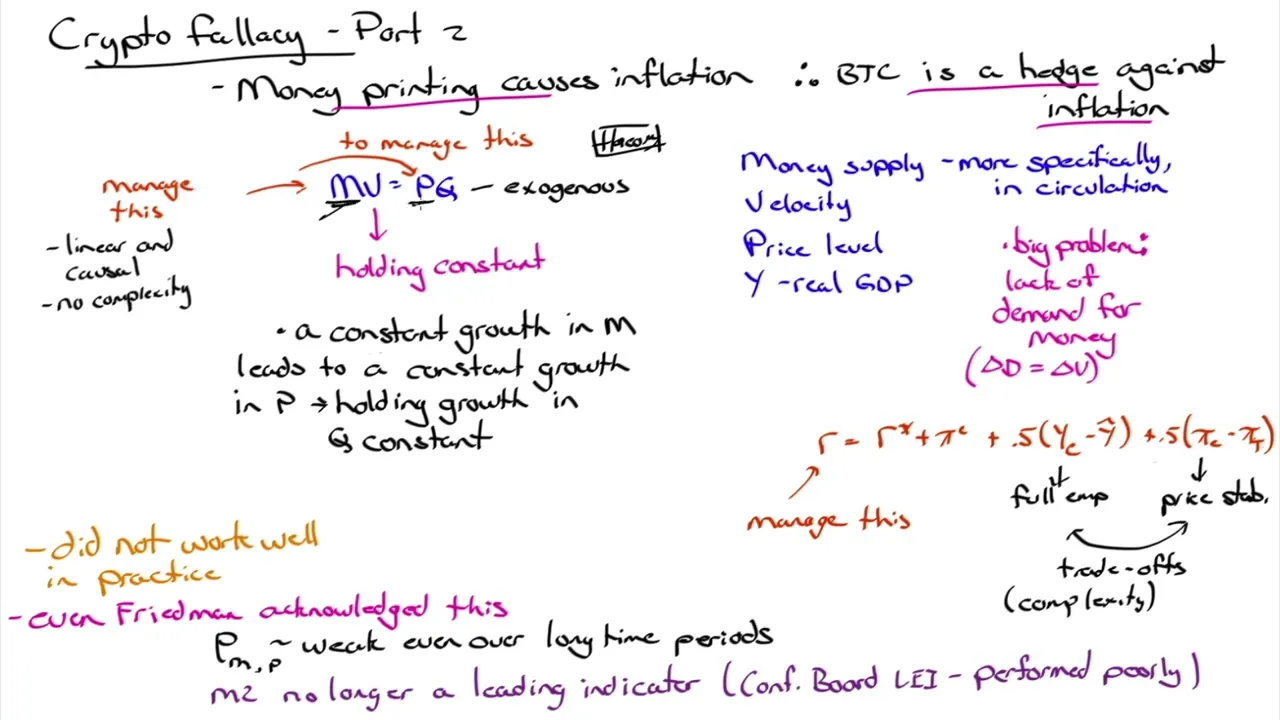 Crypto fallacy - Part 2
- Money printing causes inflation ∴ BTC is a hedge against
inflation
to manage this
manage
this
MV = PQ - exogenous
- linear and
causal
- no complexity
holding constant
Money supply - more specifically,
in circulation
Velocity
Price level
Y - real GDP
• big problem:
lack of
demand for
money
(ΔD = ΔV)
• a constant growth in M
leads to a constant growth
in P → holding growth in
Q constant
r = r* + πᵉ + .5(Y_c - Ŷ) + .5(π_c - π_T)
manage this
full emp
price stab.
trade-offs
(complexity)
- did not work well
in practice
- even Friedman acknowledged this
ρ_m,p ~ weak even over long time periods
M2 no longer a leading indicator (Conf. Board LEI - performed poorly)